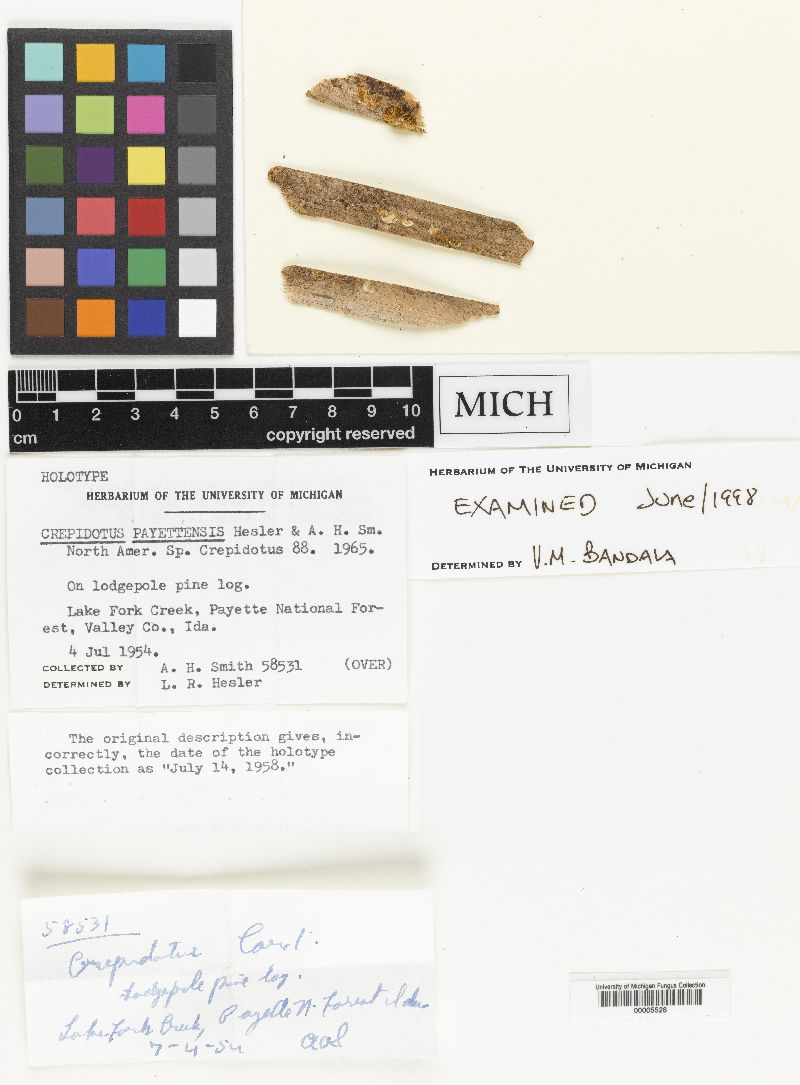 0 1 2 3 4 5 6 7 8 9 10
cm
copyright reserved
MICH
HOLOTYPE
HERBARIUM OF THE UNIVERSITY OF MICHIGAN
CREPIDOTUS PAYETTENSIS Hesler & A. H. Sm.
North Amer. Sp. Crepidotus 88. 1965.
On lodgepole pine log.
Lake Fork Creek, Payette National For-
est, Valley Co., Ida.
4 Jul 1954.
COLLECTED BY A. H. Smith 58531 (OVER)
DETERMINED BY L. R. Hesler
HERBARIUM OF THE UNIVERSITY OF MICHIGAN
EXAMINED June/1998
DETERMINED BY V.M. BANDALA
The original description gives, in-
correctly, the date of the holotype
collection as "July 14, 1958."
58531
Crepidotus
Lodgepole pine log.
Lake Fork Creek, Payette N. Forest
7-4-54
University of Michigan Fungus Collection
00005528